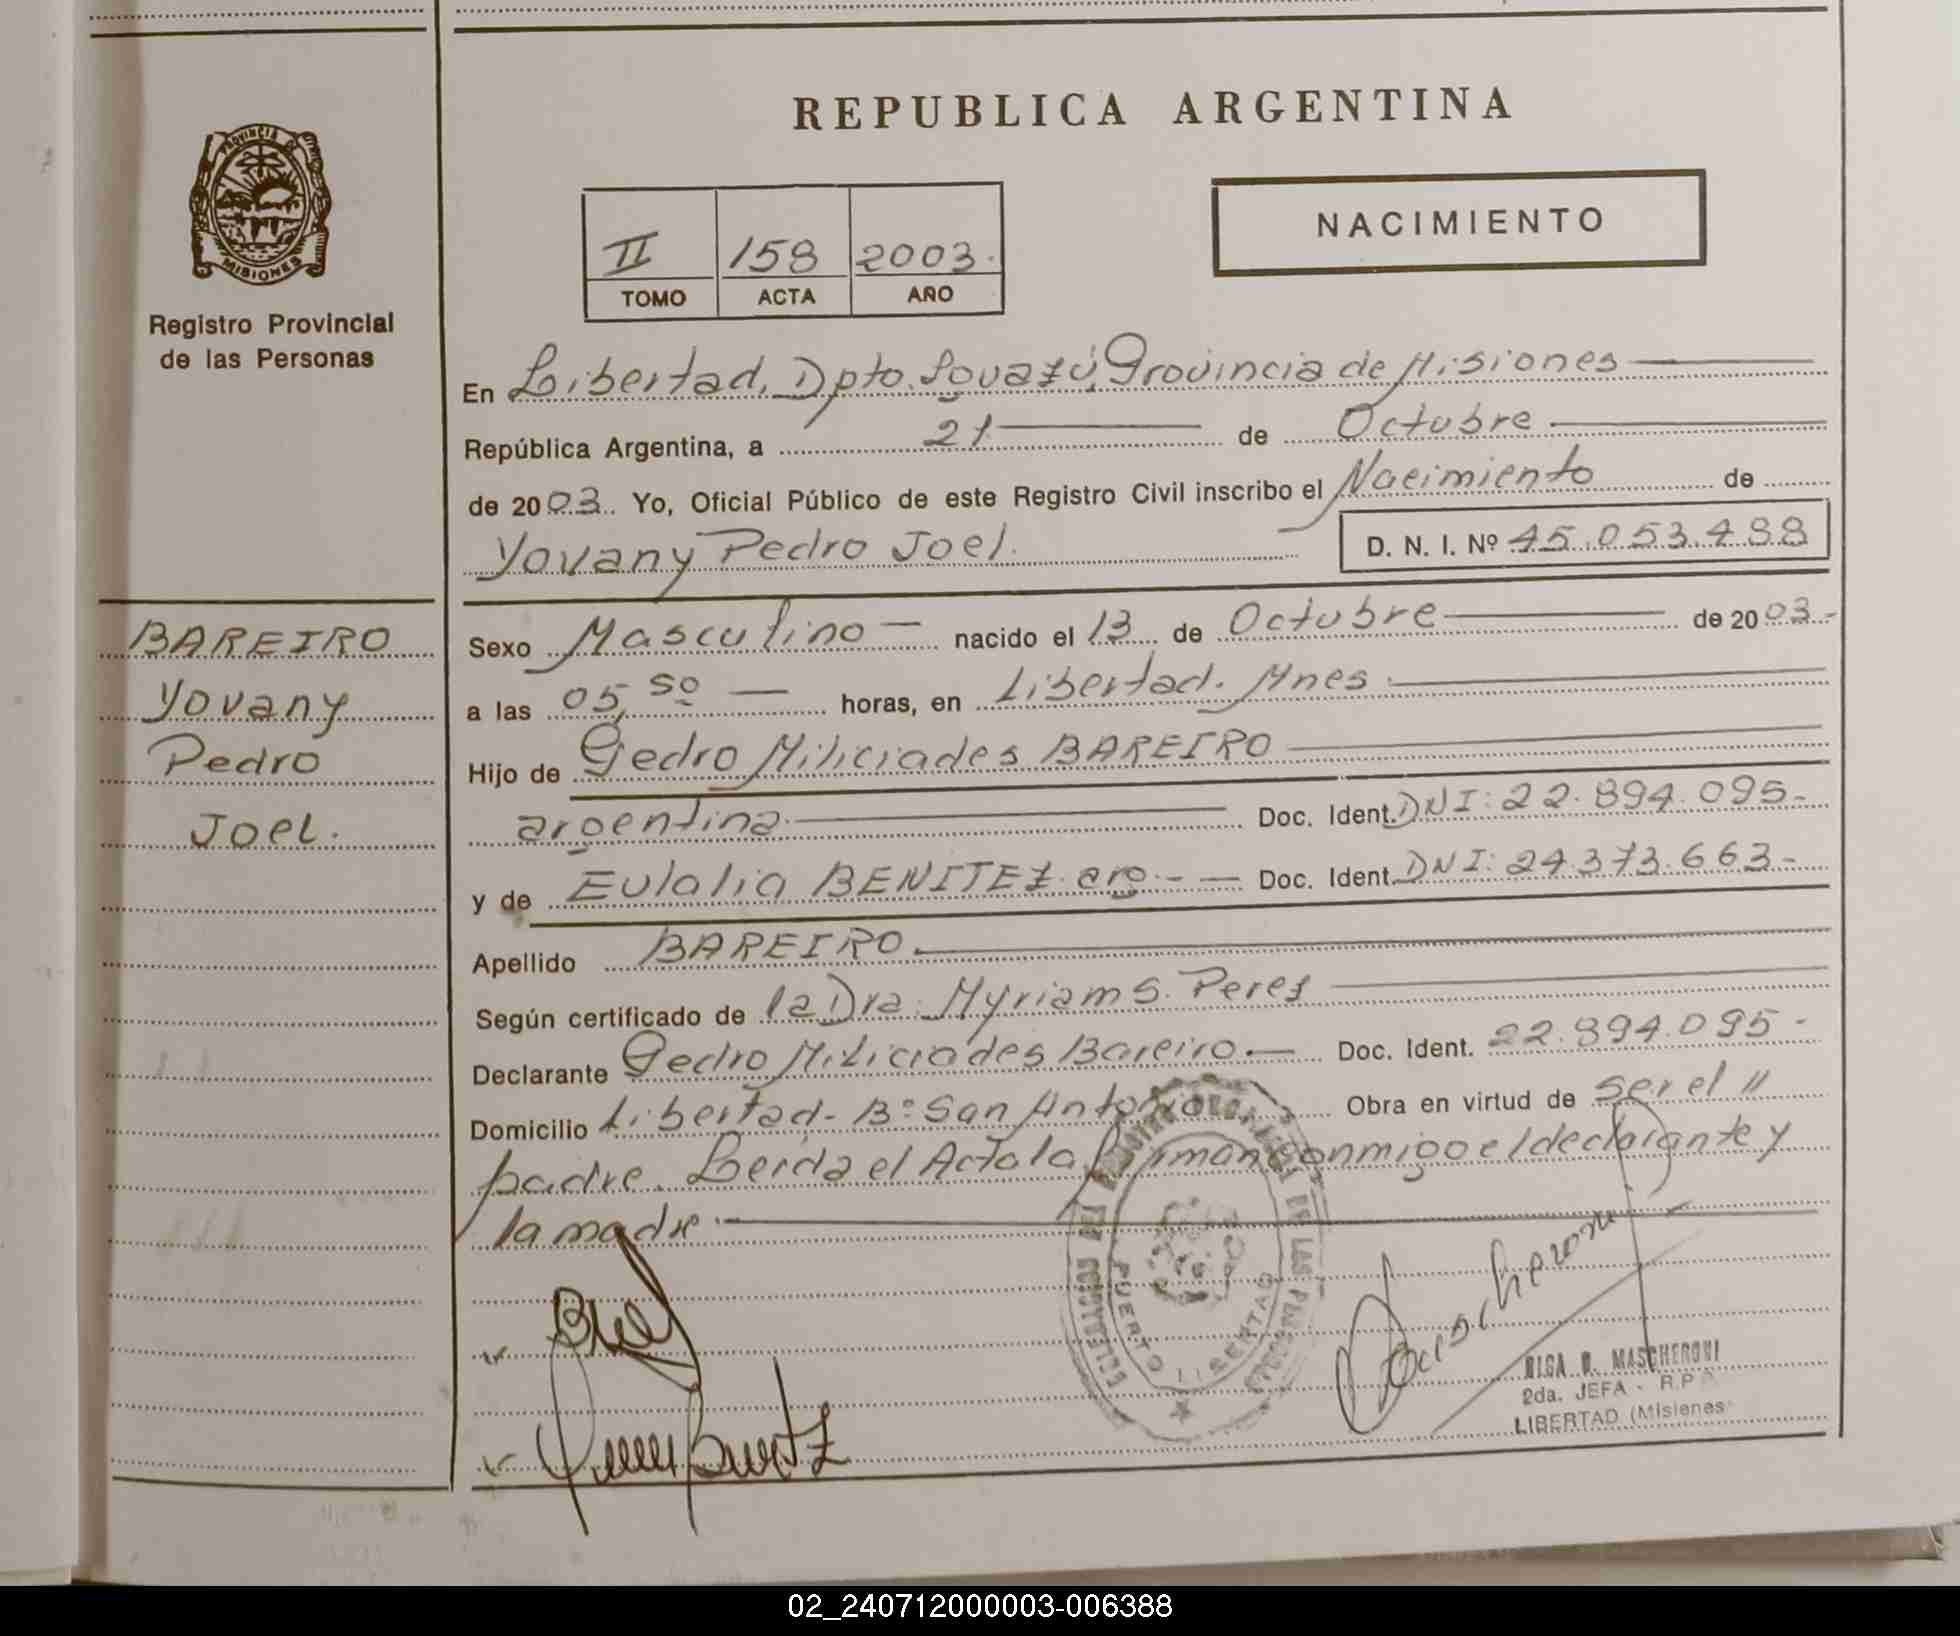 REPUBLICA ARGENTINA
PROVINCIA DE
MISIONES
Registro Provincial
de las Personas
II 158 2003.
TOMO ACTA AÑO
NACIMIENTO
En Libertad, Dpto. Iguazú, Provincia de Misiones
República Argentina, a 21 de Octubre
de 2003. Yo, Oficial Público de este Registro Civil inscribo el Nacimiento de
Yovany Pedro Joel. D. N. I. Nº 45.053.488
BAREIRO
Yovany
Pedro
Joel.
Sexo Masculino - nacido el 13 de Octubre de 2003.-
a las 05,50 - horas, en Libertad. Mnes.
Hijo de Pedro Miliciades BAREIRO
argentina. Doc. Ident. DNI: 22.894.095-
y de Eulalia BENITEZ. arg. - - Doc. Ident. DNI: 24.373.663-
Apellido BAREIRO.
Según certificado de la Dra. Myriam S. Perez
Declarante Pedro Miliciades Bareiro. - Doc. Ident. 22.894.095-
Domicilio Libertad- Bº San Antonio Obra en virtud de ser el //
padre. Leida el Acta la firman conmigo el declarante y
la madre.
DE LAS PERSONAS
PUERTO LIBERTAD
Mascheroni
OLGA MASCHERONI
2da. JEFA - R.P.
LIBERTAD (Misiones
02_240712000003-006388